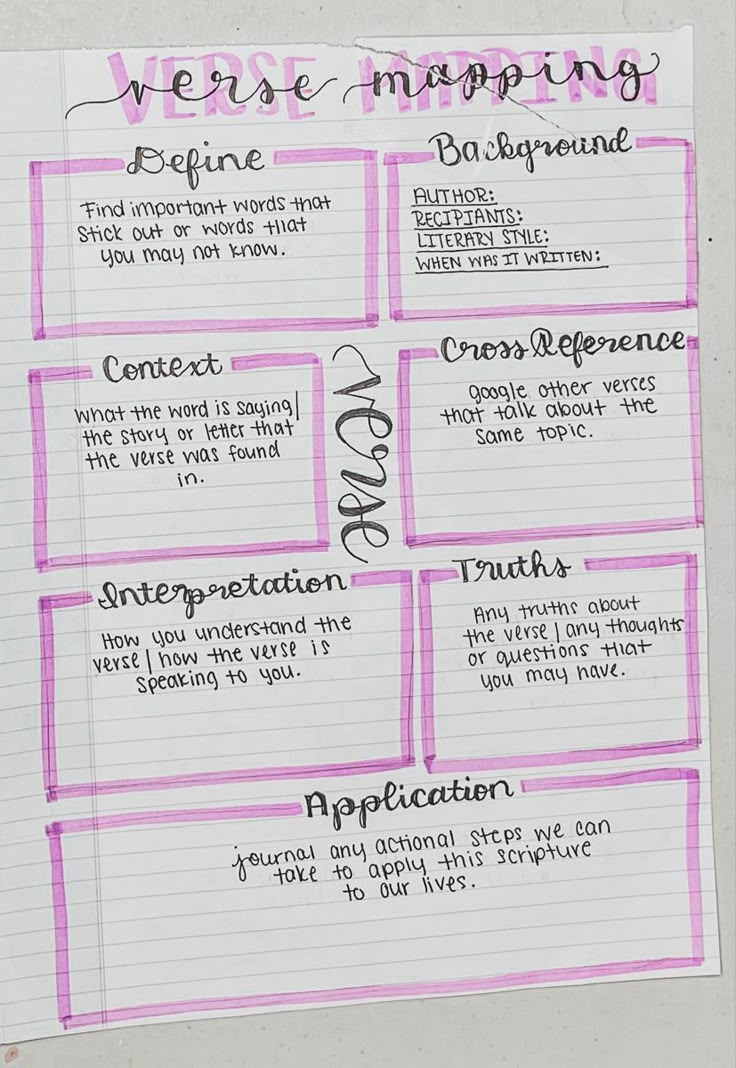 VERSE MAPPING
verse mapping
Define
Find important words that
stick out or words that
you may not know.
Background
AUTHOR:
RECIPIANTS:
LITERARY STYLE:
WHEN WAS IT WRITTEN:
Context
what the word is saying|
the story or letter that
the verse was found
in.
verse
Cross Reference
google other verses
that talk about the
same topic.
Interpretation
How you understand the
verse | how the verse is
speaking to you.
Truths
Any truths about
the verse | any thoughts
or questions that
you may have.
Application
journal any actional steps we can
take to apply this scripture
to our lives.